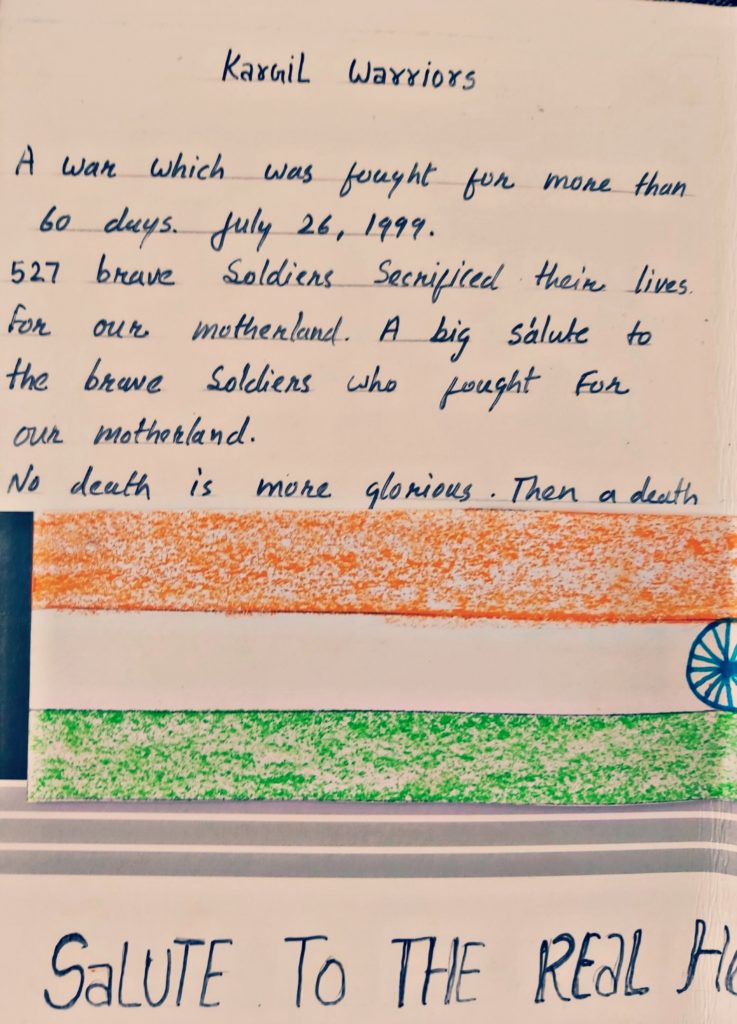 Kargil Warriors
A war which was fought for more than
60 days. July 26, 1999.
527 brave Soldiers Secrificed their lives.
For our motherland. A big salute to
the brave Soldiers who fought For
our motherland.
No death is more glorious. Then a death
SaLUTE TO THE REaL